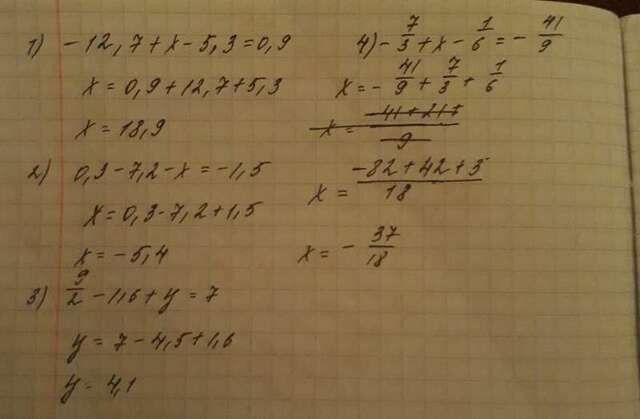 1) -12,7+x-5,3=0,9
x=0,9+12,7+5,3
x=18,9
2) 0,3-7,2-x=-1,5
x=0,3-7,2+1,5
x=-5,4
3) 9/2 -1,6+y=7
y=7-4,5+1,6
y=4,1
4) -7/3+x-1/6=-41/9
x=-41/9+7/3+1/6
x=-41+21+/9
x=-82+42+3/18
x=-37/18